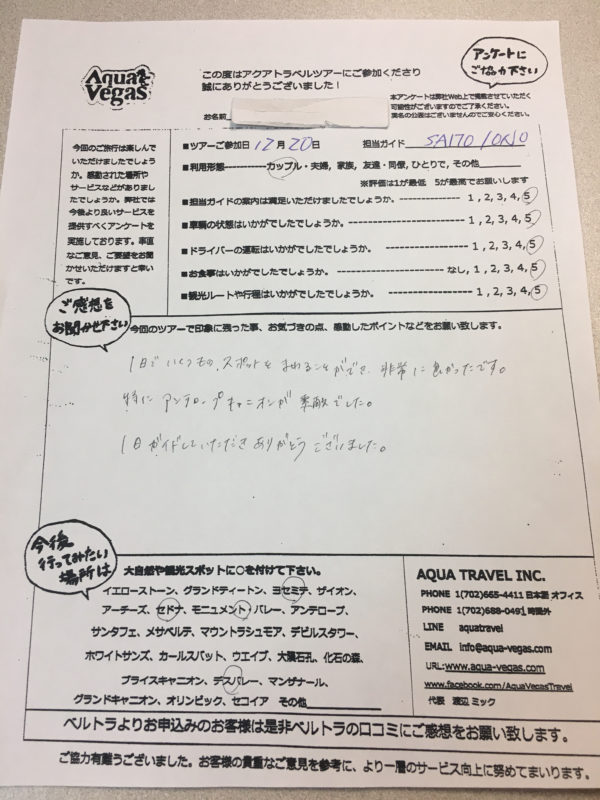 Aqua
Vegas
この度はアクアトラベルツアーにご参加くださり
誠にありがとうございました！
アンケートに
ご協力下さい
本アンケートは弊社Web上で掲載させていただく
可能性がございますのでご了承ください。
実名の公表はございませんのでご安心ください。
お名前
今回のご旅行は楽しんで
いただけましたでしょう
か。感動された場所や
サービスなどがありまし
たでしょうか。弊社では
今後より良いサービスを
提供すべくアンケートを
実施しております。率直
なご意見、ご要望をお聞
かせいただけますと幸い
です。
■ツアーご参加日 12月 20日 担当ガイド SAITO / OKIO
■利用形態-----------カップル・夫婦，家族，友達・同僚，ひとりで，その他
※評価は1が最低 5が最高でお願いします
■担当ガイドの案内は満足いただけましたでしょうか。-------------- 1 , 2, 3, 4, 5
■車輌の状態はいかがでしたでしょうか。 ------------------------ 1, 2, 3, 4, 5
■ドライバーの運転はいかがでしたでしょうか。 ---------------- 1, 2, 3, 4, 5
■お食事はいかがでしたでしょうか。 ------------------ なし, 1 , 2, 3, 4, 5
■観光ルートや行程はいかがでしたでしょうか。 ---------------- 1, 2, 3, 4, 5
ご感想を
お聞かせ下さい
今回のツアーで印象に残った事、お気づきの点、感動したポイントなどをお願い致します。
1日でいくつもの、スポットをまわることができ、非常に良かったです。
特に アンテロープキャニオンが 素敵でした。
1日ガイドしていただき ありがとう ございました。
今後
行ってみたい
場所は
大自然や観光スポットに○を付けて下さい。
イエローストーン、グランドティートン、ヨセミテ、ザイオン、
アーチーズ、セドナ、モニュメントバレー、アンテロープ、
サンタフェ、メサベルテ、マウントラシュモア、デビルスタワー、
ホワイトサンズ、カールスバット、ウエイブ、大隕石孔、化石の森、
ブライスキャニオン、デスバレー、マンザナール、
グランドキャニオン、オリンピック、セコイア その他
AQUA TRAVEL INC.
PHONE 1(702)665-4411 日本語 オフィス
PHONE 1(702)688-0491 時間外
LINE aquatravel
EMAIL info@aqua-vegas.com
URL:www.aqua-vegas.com
www.facebook.com/AquaVegasTravel
代表 渡辺 ミック
ベルトラよりお申込みのお客様は是非ベルトラの口コミにご感想をお願い致します。
ご協力有難うございました。お客様の貴重なご意見を参考に、より一層のサービス向上に努めてまいります。